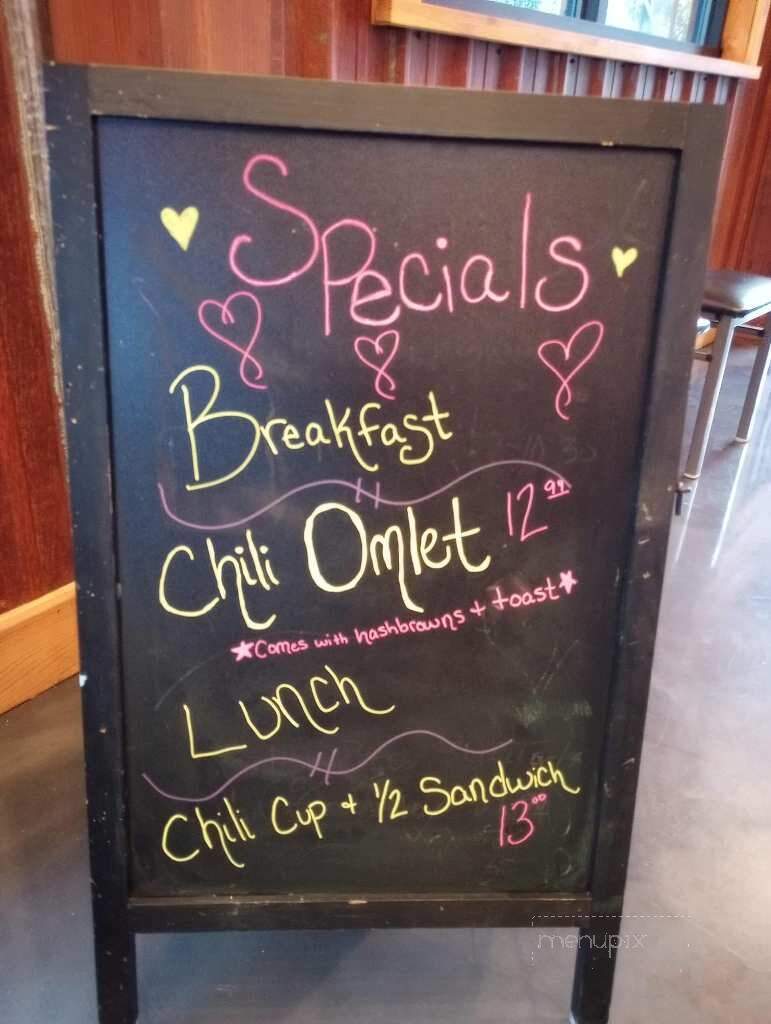 Specials
Breakfast
Chili Omlet 12.99
★Comes with hashbrowns + toast★
Lunch
Chili Cup + 1/2 Sandwich
13.00
menupix